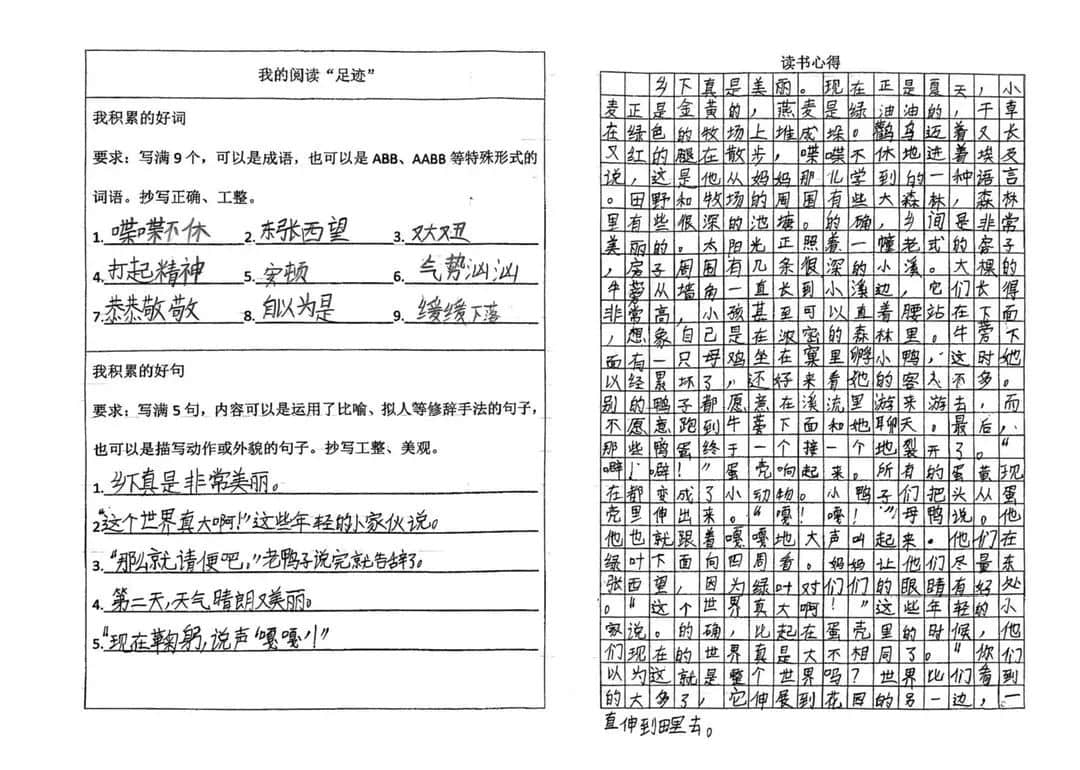 我的阅读“足迹”
我积累的好词
要求：写满9个，可以是成语，也可以是ABB、AABB等特殊形式的
词语。抄写正确、工整。
1. 喋喋不休 2. 东张西望 3. 又大又丑
4. 打起精神 5. 安顿 6. 气势汹汹
7. 恭恭敬敬 8. 自以为是 9. 缓缓下落
我积累的好句
要求：写满5句，内容可以是运用了比喻、拟人等修辞手法的句子，
也可以是描写动作或外貌的句子。抄写工整、美观。
1. 乡下真是非常美丽。
2. “这个世界真大啊！”这些年轻的小家伙说。
3. “那么就请便吧，”老鸭子说完就告辞了。
4. 第二天，天气晴朗又美丽。
5. “现在鞠躬，说声‘嘎嘎’！”
读书心得
乡下真是美丽。现在正是夏天，小
麦正是金黄的，燕麦是绿油油的，干草
在绿色的牧场上堆成垛。鹳鸟迈着又长
又红的腿在散步，喋喋不休地进着埃及
说，这是他从妈妈那儿学到的一种语言
。田野和牧场的周围有些大森林，森林
里有些很深的池塘。的确，乡间是非常
美丽的。太阳光正照着一幢老式的房子
，房子周围有几条很深的小溪。大棵的
牛蒡从墙角一直长到小溪边，它们长得
非常高，小孩甚至可以直着腰站在下面
，想象自己是在浓密的森林里。牛蒡下
面有一只母鸡坐在窠里孵小鸭，这时她
以经累坏了，还好来看她的客人不多。
别的鸭子都愿意在溪流里游来游去，而
不愿意跑到牛蒡下面和她聊天。最后，
那些鸭蛋终于一个接一个地裂开了。“
噼！噼！”蛋壳响起来。所有的蛋黄现
在都变成了小动物。小鸭子们把头从蛋
壳里伸出来。“嘎！嘎！”母鸭说。他
他也就跟着嘎嘎地大声叫起来。他们在
绿叶下面向四周看。妈妈让他们尽量东
张西望，因为绿叶对们们的眼睛有好处
。“这个世界真大啊！”这些年轻的小
家说。的确，比起在蛋壳里的时候，他
们现在的世界真是大不相同了。“你们
以为这就是整个世界吗？世界比们看到
的大多了，它伸展到花园的另一边，一
直伸到田里去。